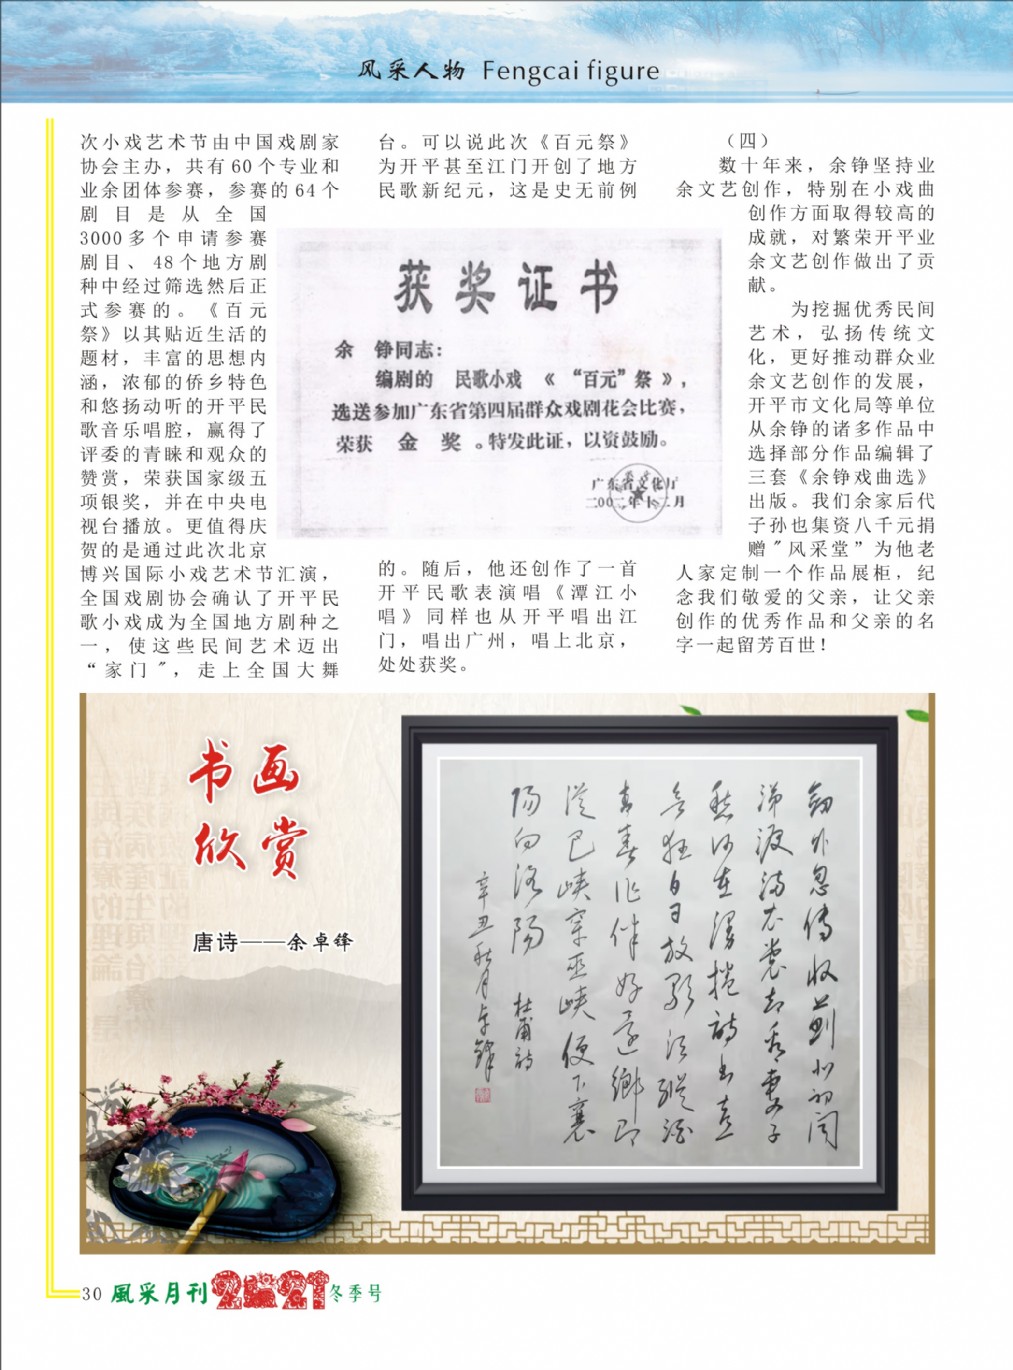 风采人物 Fengcai figure
次小戏艺术节由中国戏剧家
协会主办，共有60个专业和
业余团体参赛，参赛的64个
剧目是从全国
3000多个申请参赛
剧目、48个地方剧
种中经过筛选然后正
式参赛的。《百元
祭》以其贴近生活的
题材，丰富的思想内
涵，浓郁的侨乡特色
和悠扬动听的开平民
歌音乐唱腔，赢得了
评委的青睐和观众的
赞赏，荣获国家级五
项银奖，并在中央电
视台播放。更值得庆
贺的是通过此次北京
博兴国际小戏艺术节汇演，
全国戏剧协会确认了开平民
歌小戏成为全国地方剧种之
一，使这些民间艺术迈出
“家门"，走上全国大舞
台。可以说此次《百元祭》
为开平甚至江门开创了地方
民歌新纪元，这是史无前例
获奖证书
余　铮同志：
编剧的　民歌小戏　《　“百元”祭　》，
选送参加广东省第四届群众戏剧花会比赛，
荣获　金　奖　。特发此证，以资鼓励。
广东省文化厅
二00二年十二月
的。随后，他还创作了一首
开平民歌表演唱《潭江小
唱》同样也从开平唱出江
门，唱出广州，唱上北京，
处处获奖。
（四）
数十年来，余铮坚持业
余文艺创作，特别在小戏曲
创作方面取得较高的
成就，对繁荣开平业
余文艺创作做出了贡
献。
为挖掘优秀民间
艺术，弘扬传统文
化，更好推动群众业
余文艺创作的发展，
开平市文化局等单位
从余铮的诸多作品中
选择部分作品编辑了
三套《余铮戏曲选》
出版。我们余家后代
子孙也集资八千元捐
赠"风采堂”为他老
人家定制一个作品展柜，纪
念我们敬爱的父亲，让父亲
创作的优秀作品和父亲的名
字一起留芳百世！
书画
欣赏
唐诗——余卓锋
剑外忽传收蓟北初闻
涕泪满衣裳却看妻子
愁何在漫捲诗书喜
欲狂白日放歌须纵酒
青春作伴好还乡即
从巴峡穿巫峡便下襄
阳向洛阳　杜甫诗
辛丑秋月卓锋
30 風采月刊2021冬季号